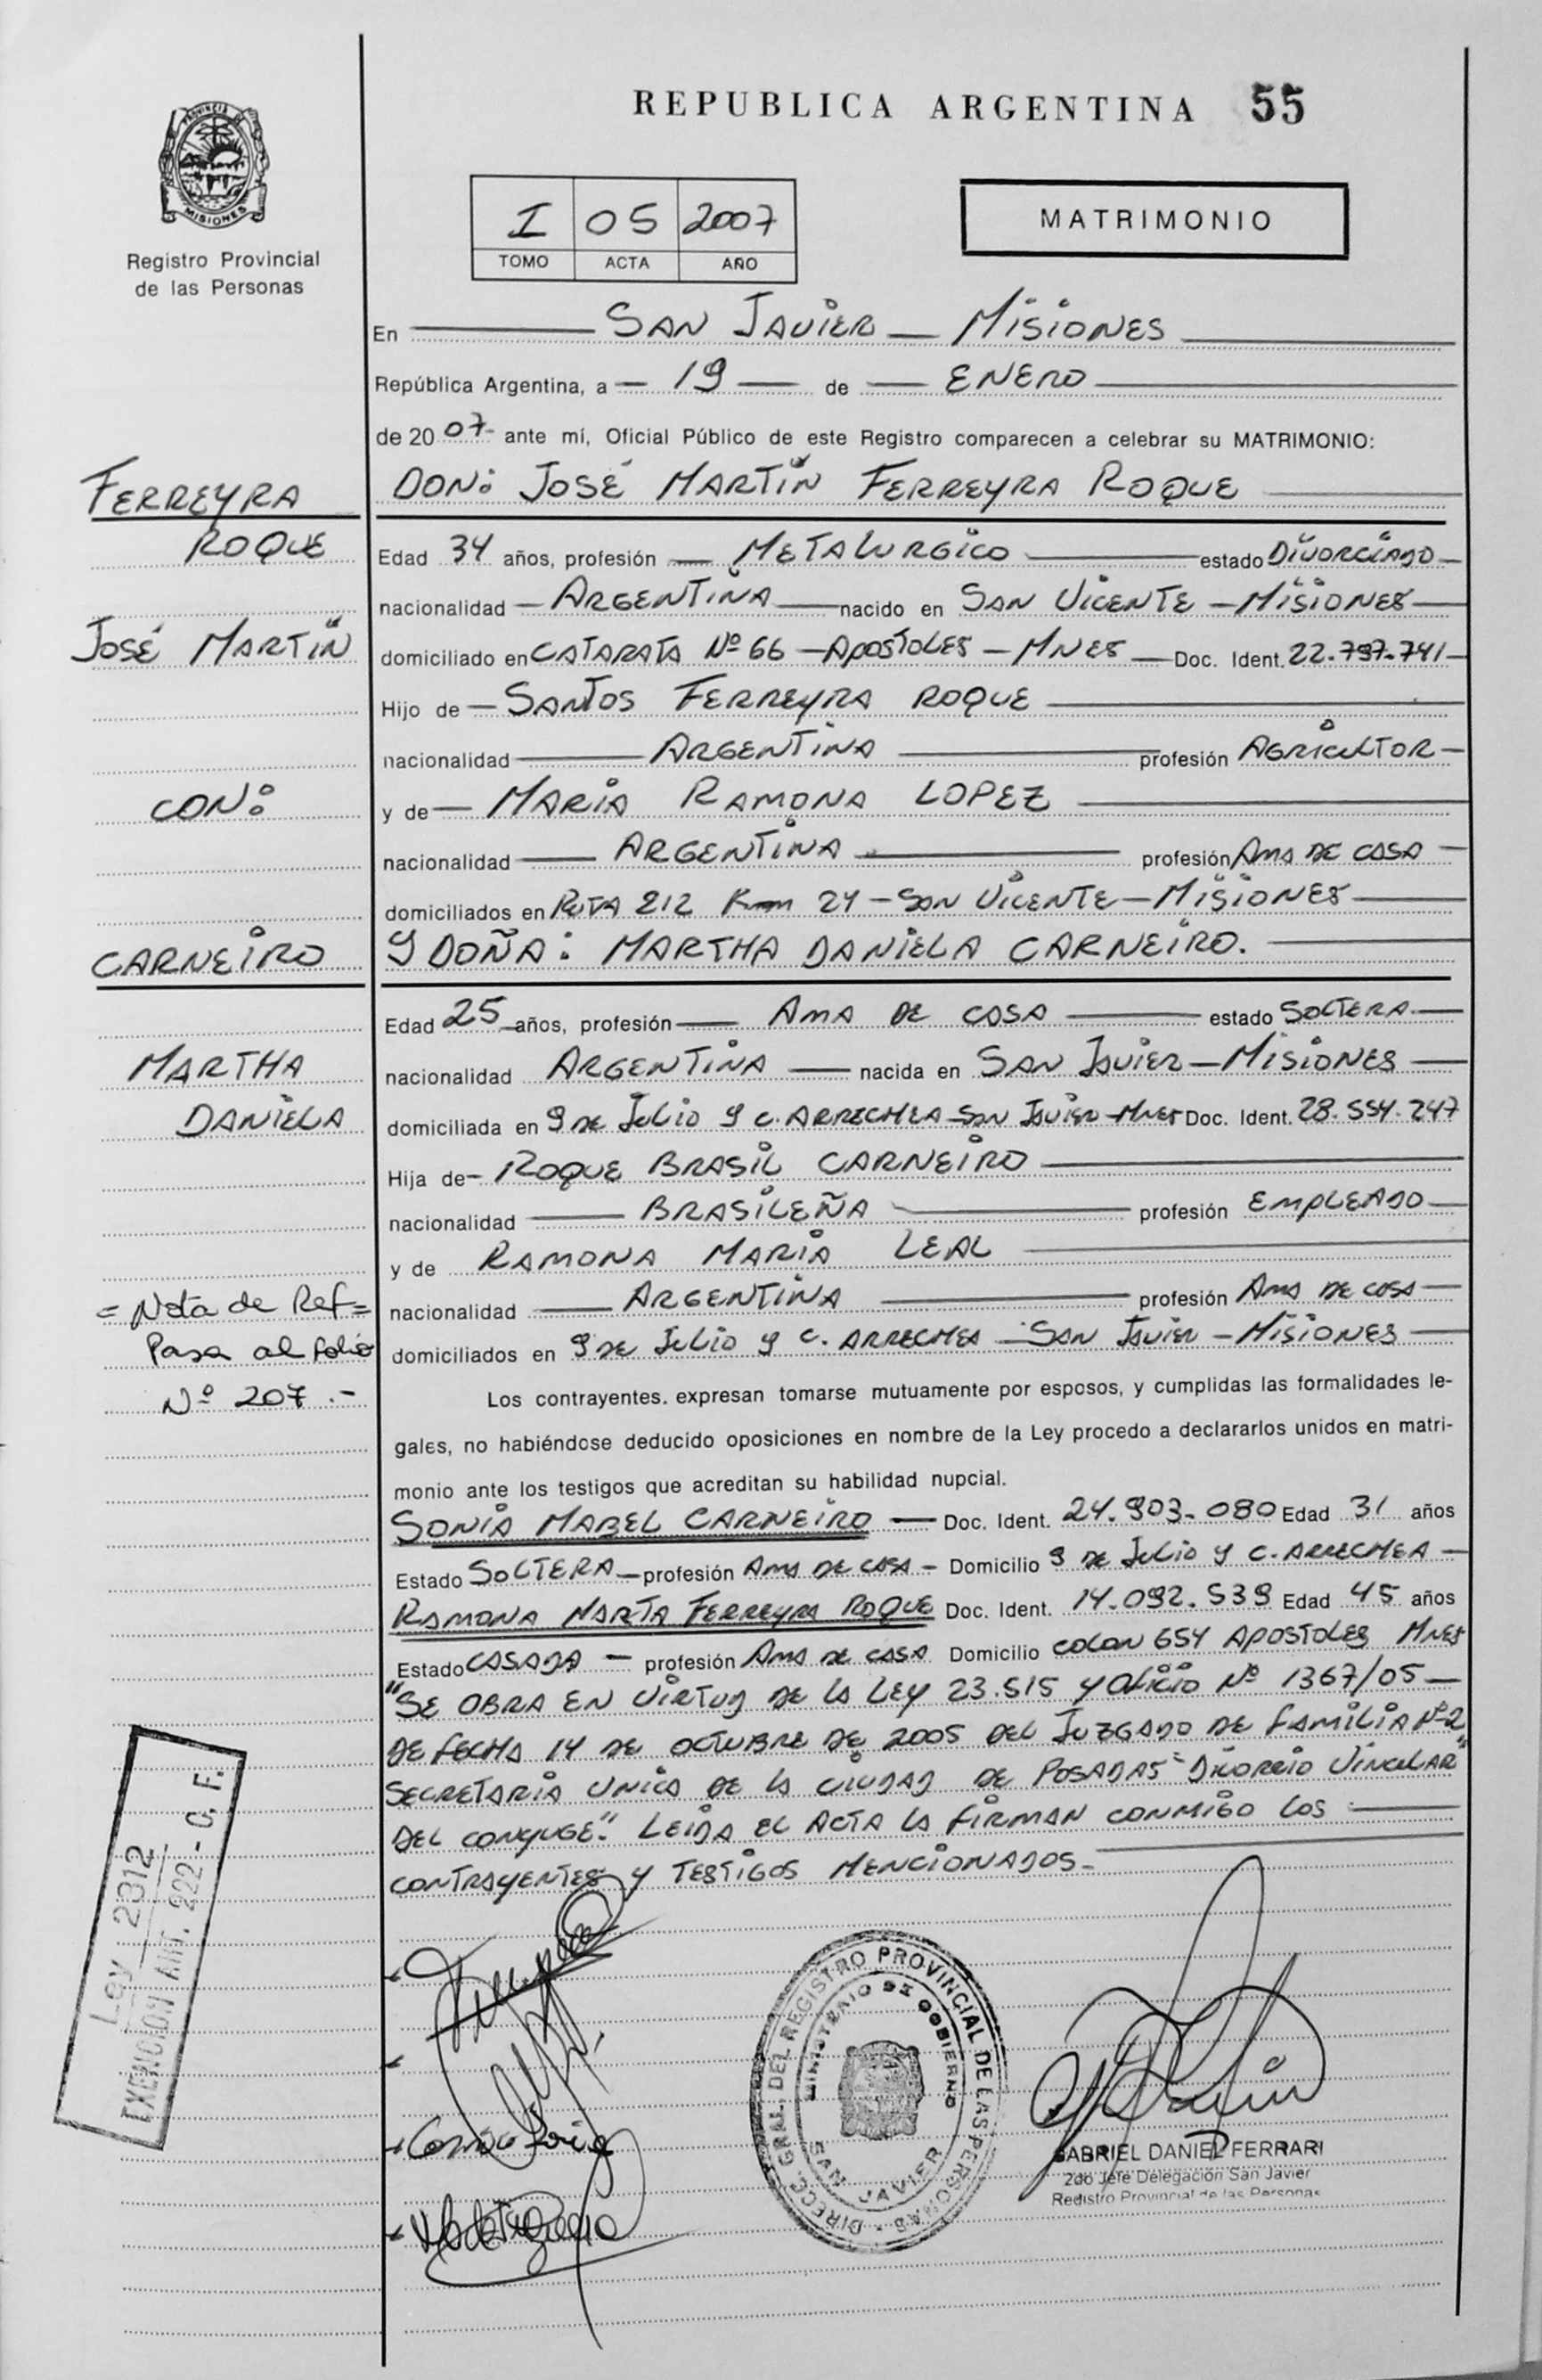 REPUBLICA ARGENTINA 55
PROVINCIA DE
MISIONES
Registro Provincial
de las Personas
I 05 2007
TOMO ACTA AÑO
MATRIMONIO
En SAN JAVIER - MISIONES
República Argentina, a - 19 - de - ENERO
de 20 07- ante mí, Oficial Público de este Registro comparecen a celebrar su MATRIMONIO:
FERREYRA
DON: JOSÉ MARTÍN FERREYRA ROQUE
ROQUE
Edad 34 años, profesión - METALURGICO - estado DIVORCIADO -
nacionalidad - ARGENTINA - nacido en SAN VICENTE - MISIONES -
JOSÉ MARTÍN
domiciliado en CATARATA Nº 66 - APOSTOLES - MNES - Doc. Ident. 22.797.741 -
Hijo de - SANTOS FERREYRA ROQUE
nacionalidad - ARGENTINA - profesión AGRICULTOR -
CON:
y de - MARIA RAMONA LOPEZ
nacionalidad - ARGENTINA - profesión AMA DE CASA -
domiciliados en RUTA 212 Km 24 - SAN VICENTE - MISIONES -
CARNEIRO
Y DOÑA: MARTHA DANIELA CARNEIRO.
Edad 25 años, profesión - AMA DE CASA - estado SOLTERA. -
MARTHA
nacionalidad ARGENTINA - nacida en SAN JAVIER - MISIONES -
DANIELA
domiciliada en 9 DE JULIO Y C. ARRECHEA - SAN JAVIER - MNES Doc. Ident. 28.554.247
Hija de - ROQUE BRASIL CARNEIRO
nacionalidad - BRASILEÑA - profesión EMPLEADO -
y de RAMONA MARIA LEAL
= Nota de Ref =
nacionalidad - ARGENTINA - profesión AMA DE CASA -
Pasa al folio
domiciliados en 9 DE JULIO Y C. ARRECHEA - SAN JAVIER - MISIONES -
Nº 207 .-
Los contrayentes. expresan tomarse mutuamente por esposos, y cumplidas las formalidades le-
gales, no habiéndose deducido oposiciones en nombre de la Ley procedo a declararlos unidos en matri-
monio ante los testigos que acreditan su habilidad nupcial.
SONIA MABEL CARNEIRO - Doc. Ident. 24.903.080 Edad 31 años
Estado SOLTERA - profesión AMA DE CASA - Domicilio 9 DE JULIO Y C. ARRECHEA -
RAMONA MARTA FERREYRA ROQUE Doc. Ident. 14.092.539 Edad 45 años
Estado CASADA - profesión AMA DE CASA Domicilio COLON 654 APOSTOLES MNES
"SE OBRA EN VIRTUD DE LA LEY 23.515 Y OFICIO Nº 1367/05 -
DE FECHA 14 DE OCTUBRE DE 2005 DEL JUZGADO DE FAMILIA Nº 2
SECRETARIA UNICA DE LA CIUDAD DE POSADAS "DIVORCIO VINCULAR"
DEL CONYUGE". LEIDA EL ACTA LA FIRMAN CONMIGO LOS
CONTRAYENTES Y TESTIGOS MENCIONADOS -
Ley 2312
EXENCION ART. 222 - C. F.
DIRECC. GRAL. DEL REGISTRO PROVINCIAL DE LAS PERSONAS -
MINISTERIO DE GOBIERNO
SAN JAVIER
GABRIEL DANIEL FERRARI
2do Jefe Delegación San Javier
Registro Provincial de las Personas